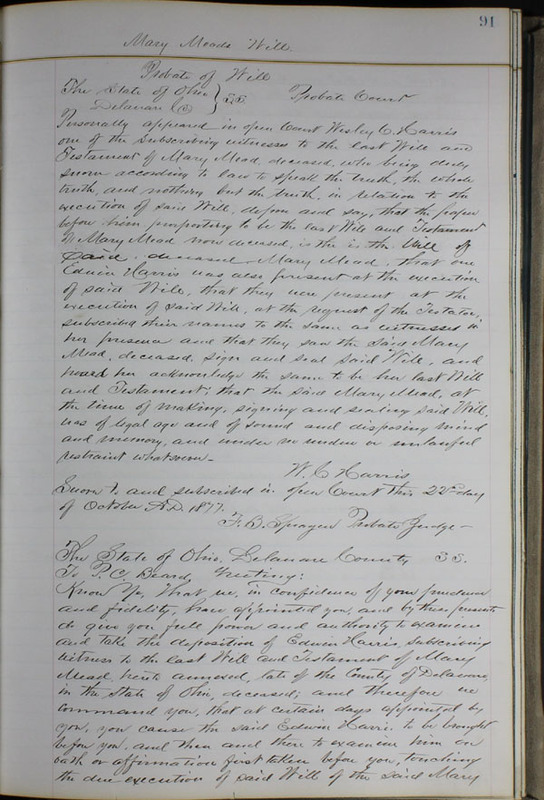 91
Mary Meads Will.
Probate of Will
The State of Ohio } SS. Probate Court
Delaware Co
Personally appeared in open Court Wesley C. Harris
one of the subscribing witnesses to the last Will and
Testament of Mary Mead, deceased, who being duly
sworn according to law to speak the truth, the whole
truth and nothing but the truth, in relation to the
execution of said Will, depose and say, that the paper
before them purporting to be the last Will and Testament
of Mary Mead now deceased, is the is the Will of
said, deceased Mary Mead, that one
Edwin Harris was also present at the execution
of said Will, that they were present at the
execution of said Will, at the request of the Testator,
subscribed their names to the same as witnesses in
her presence and that they saw the said Mary
Mead, deceased, sign and seal said Will, and
heard her acknowledge the same to be her last Will
and Testament; that the said Mary Mead, at
the time of making, signing and sealing said Will,
was of legal age and of sound and disposing mind
and memory, and under no undue or unlawful
restraint whatsoever.
W. C. Harris
Sworn to and subscribed in open Court this 22nd day
of October A.D. 1877.
F. B. Sprague Probate Judge
The State of Ohio, Delaware County SS.
To P. C. Beard, Greeting:
Know Ye, That we, in confidence of your prudence
and fidelity, have appointed you, and by these presents
do give you full power and authority to examine
and take the deposition of Edwin Harris, subscribing
witness to the last Will and Testament of Mary
Mead, hereto annexed, late of the County of Delaware,
in the State of Ohio, deceased; and therefore we
command you, that at certain days appointed by
you, you cause the said Edwin Harris to be brought
before you, and then and there to examine him on
oath or affirmation first taken before you, touching
the due execution of said Will of the said Mary